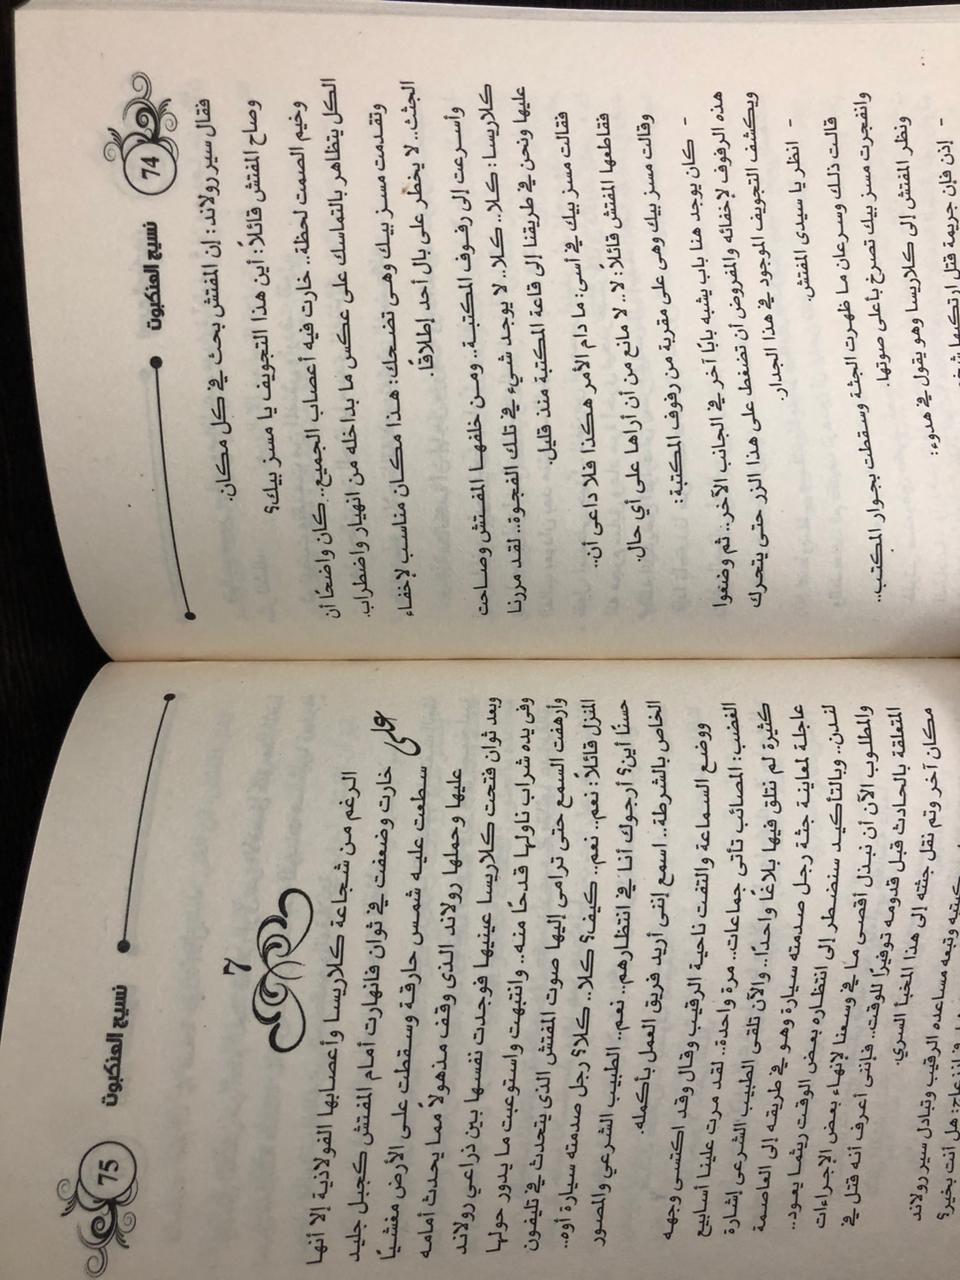 74
نسيج العنكبوت
فقال سير رولاند: إن المفتش بحث في كل مكان.
وصاح المفتش قائلاً: أين هذا التجويف يا مسز بيك؟
وخيم الصمت لحظة.. خارت فيه أعصاب الجميع.. كان واضحًا أن
الكل يتظاهر بالتماسك على عكس ما بداخله من انهيار واضطراب.
وتقدمت مسز بيك وهى تضحك: هذا مكان مناسب لإخفاء
الجثث.. لا يخطر على بال أحد إطلاقًا.
وأسرعت إلى رفوف المكتبة.. ومن خلفها المفتش وصاحت
كلاريسا: كلا.. كلا.. لا يوجد شيء في تلك الفجوة.. لقد مررنا
عليها ونحن في طريقنا إلى قاعة المكتبة منذ قليل.
فقالت مسز بيك في أسى: ما دام الأمر هكذا فلا داعى أن..
فقاطعها المفتش قائلاً: لا.. لا مانع من أن أراها على أي حال.
وقالت مسز بيك وهى على مقربة من رفوف المكتبة:
- كان يوجد هنا باب يشبه بابًا آخر في الجانب الآخر.. ثم وضعوا
هذه الرفوف لإخفائه والمفروض أن تضغط على هذا الزر حتى يتحرك
ويكشف التجويف الموجود في هذا الجدار.
- انظر يا سيدى المفتش.
قالت ذلك وسرعان ما ظهرت الجثة وسقطت بجوار المكتب..
وانفجرت مسز بيك تصرخ بأعلى صوتها.
ونظر المفتش إلى كلاريسا وهو يقول في هدوء:
- إذن فإن جريمة قتل ارتكبها
75
نسيج العنكبوت
7
على
الرغم من شجاعة كلاريسا وأعصابها الفولاذية إلا أنها
خارت وضعفت في ثوان فانهارت أمام المفتش كجبل جليد
سطعت عليه شمس حارقة وسقطت على الأرض مغشيًا
عليها وحملها رولاند الذى وقف مذهولاً مما يحدث أمامه
وبعد ثوان فتحت كلاريسا عينيها فوجدت نفسها بين ذراعي رولاند
وفى يده شراب ناولها قدحًا منه.. وانتبهت واستوعبت ما يدور حولها
وأرهفت السمع حتى ترامى إليها صوت المفتش الذى يتحدث في تليفون
المنزل قائلاً: نعم.. نعم.. كيف؟ كلا.. كلا؟ رجل صدمته سيارة أوه..
حسنًا أين؟ أرجوك أنا في انتظارهم.. نعم.. الطبيب الشرعي والمصور
الخاص بالشرطة.. اسمع إننى أريد فريق العمل بأكمله.
ووضع السماعة والتفت ناحية الرقيب وقال وقد اكتسى وجهه
الغضب: المصائب تأتى جماعات.. مرة واحدة.. لقد مرت علينا أسابيع
كثيرة لم نتلق فيها بلاغًا واحدًا.. والآن تلقى الطبيب الشرعى إشارة
عاجلة لمعاينة جثة رجل صدمته سيارة وهو في طريقه إلى العاصمة
لندن.. وبالتأكيد سنضطر إلى انتظاره بعض الوقت ريثما يعود..
والمطلوب الآن أن نبذل أقصى ما في وسعنا لإنهاء بعض الإجراءات
المتعلقة بالحادث قبل قدومه توفيرًا للوقت.. فإننى أعرف أنه قتل في
مكان آخر وتم نقل جثته إلى هذا المخبأ السري.
وتبعه مساعده الرقيب وتبادل سير رولاند
هل أنت بخير؟